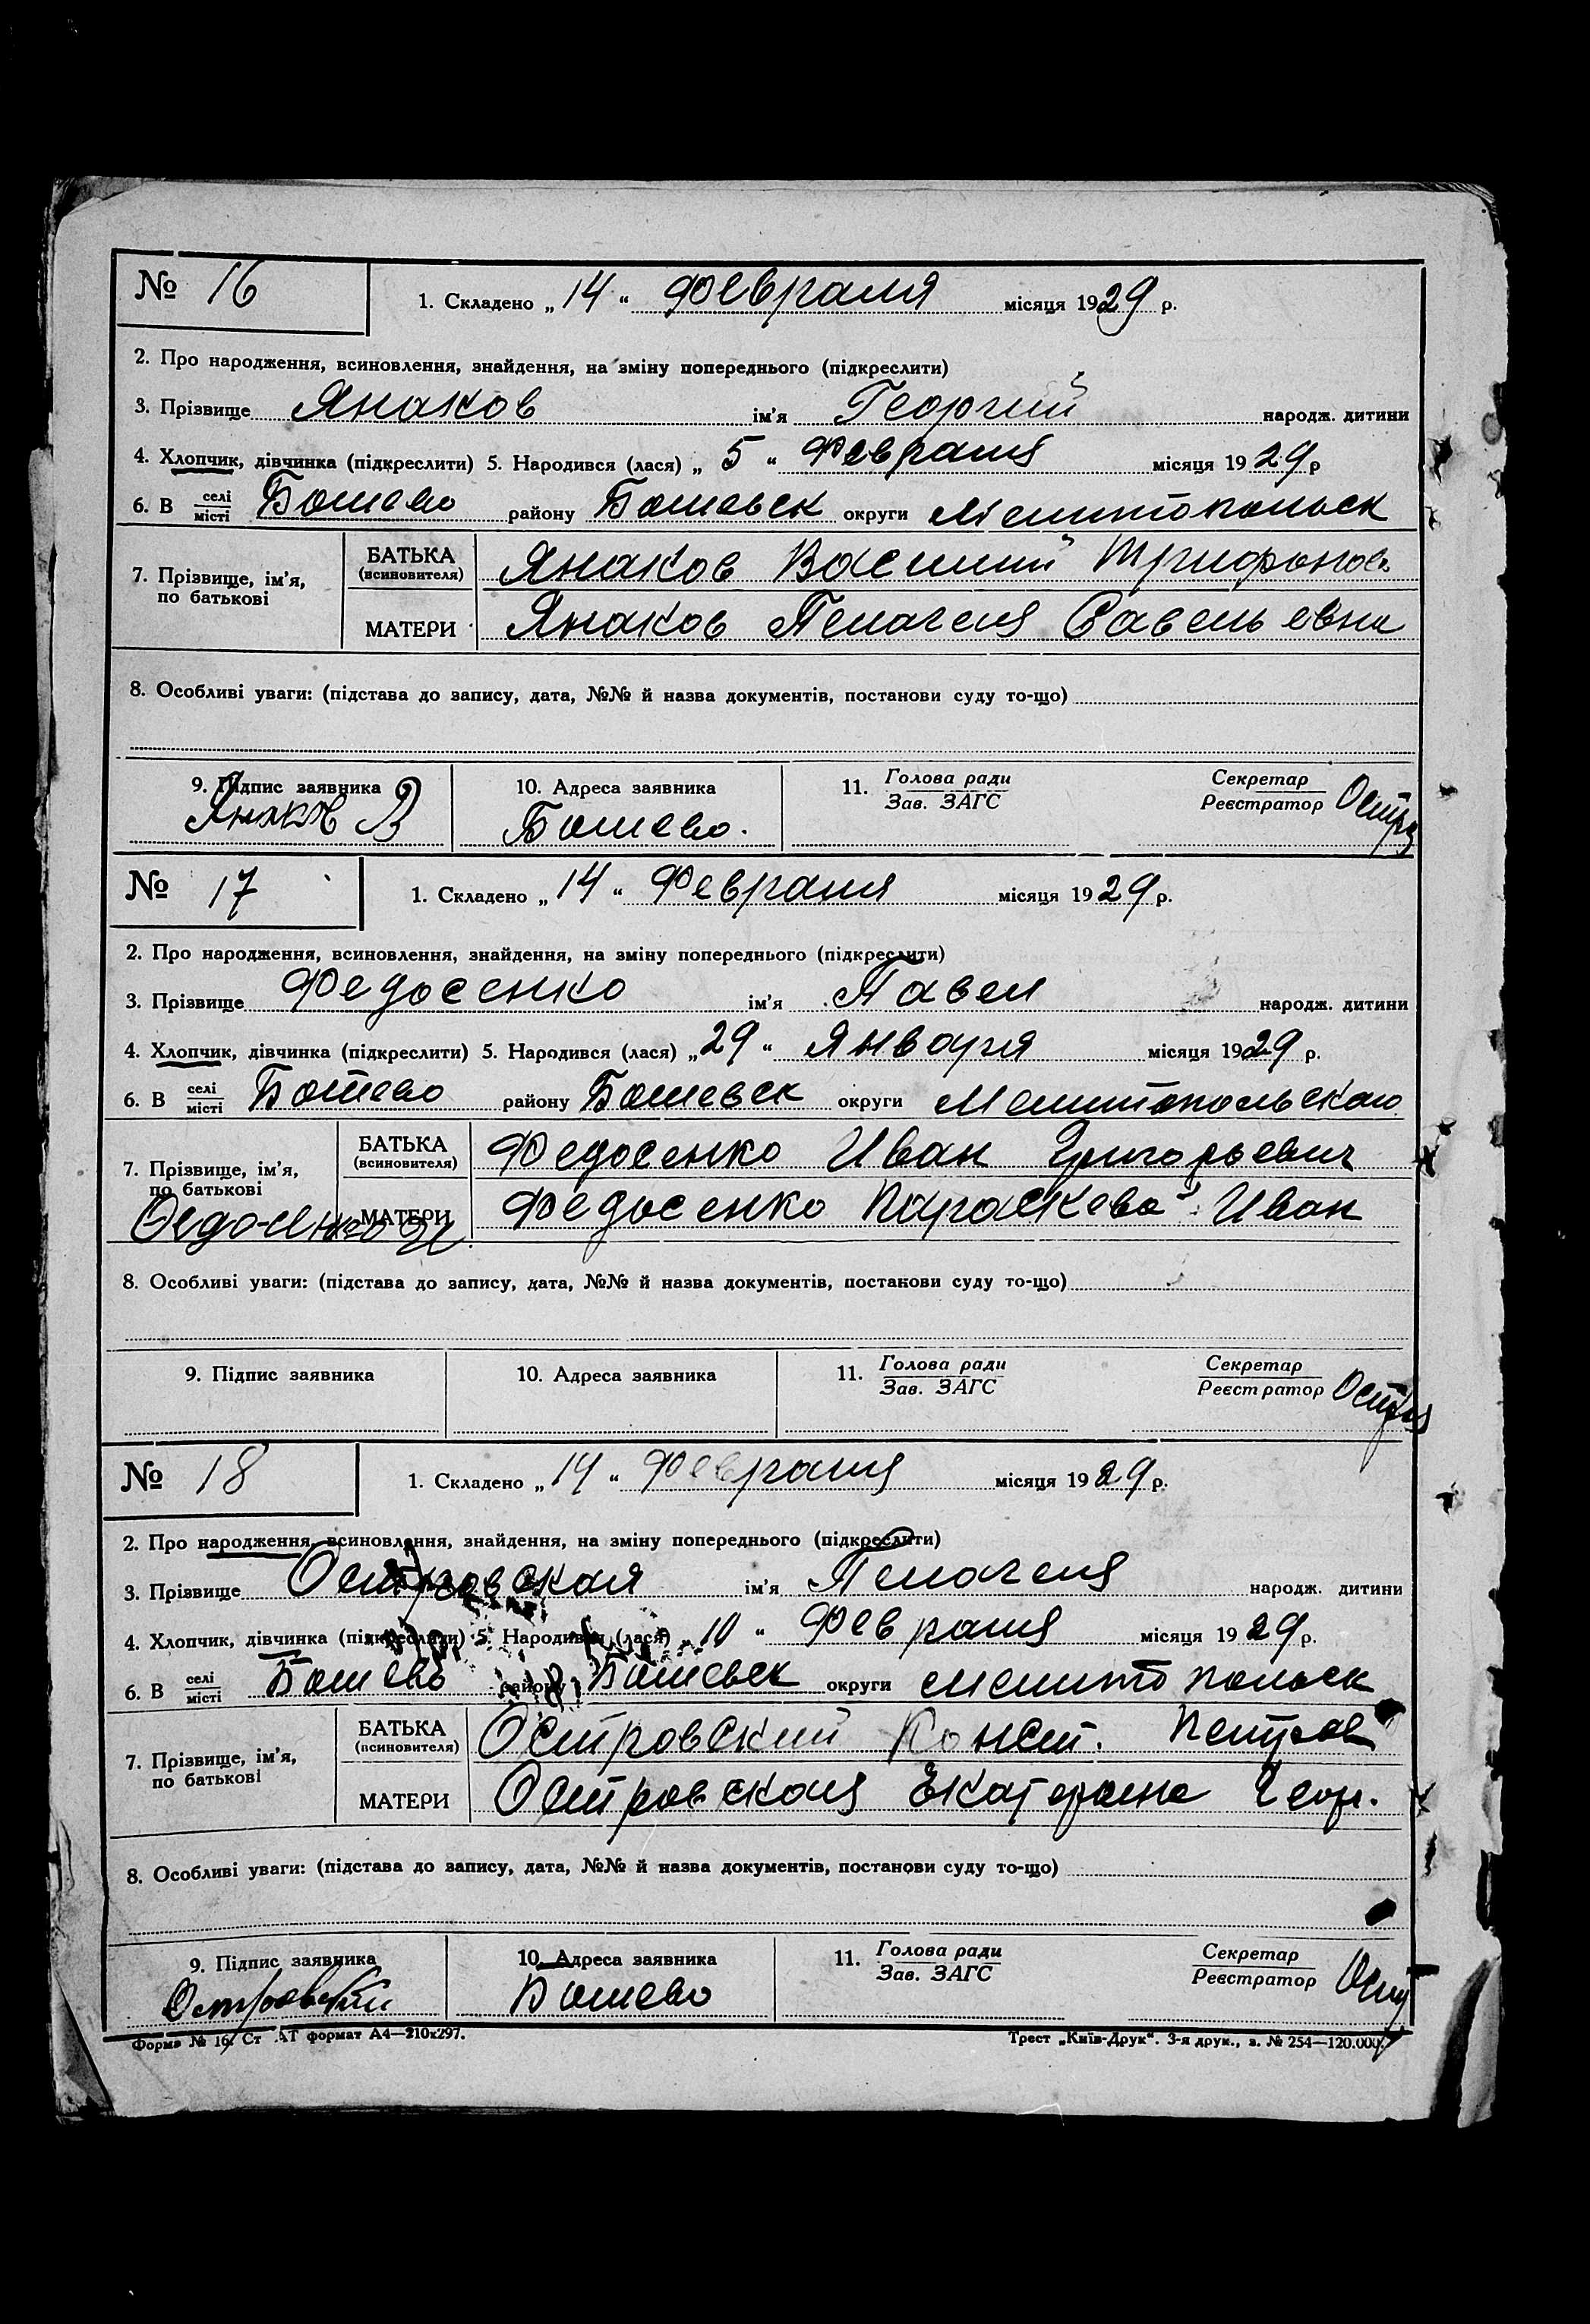 № 16 1. Складено „ 14 “ Февраля місяця 1929 р.
2. Про народження, всиновлення, знайдення, на зміну попереднього (підкреслити)
3. Прізвище Янаков ім'я Георгий народж. дитини
4. Хлопчик, дівчинка (підкреслити) 5. Народився (лася) „ 5 “ Февраля місяця 1929 р
6. В селі/місті Ботево району Ботевск округи Мелитопольск
7. Прізвище, ім'я, по батькові БАТЬКА (всиновителя) Янаков Василий Трифонов
МАТЕРИ Янаков Пелагея Савельевна
8. Особливі уваги: (підстава до запису, дата, №№ й назва документів, постанови суду то-що)
9. Підпис заявника 10. Адреса заявника 11. Голова ради/Зав. ЗАГС Секретар/Реєстратор
Янаков В Ботево.
№ 17 1. Складено „ 14 “ Февраля місяця 1929 р.
2. Про народження, всиновлення, знайдення, на зміну попереднього (підкреслити)
3. Прізвище Федосенко ім'я Павел народж. дитини
4. Хлопчик, дівчинка (підкреслити) 5. Народився (лася) „ 29 “ Января місяця 1929 р.
6. В селі/місті Ботево району Ботевск округи Мелитопольского
7. Прізвище, ім'я, по батькові БАТЬКА (всиновителя) Федосенко Иван Григорьевич
МАТЕРИ Федосенко Параскева Иван
8. Особливі уваги: (підстава до запису, дата, №№ й назва документів, постанови суду то-що)
9. Підпис заявника 10. Адреса заявника 11. Голова ради/Зав. ЗАГС Секретар/Реєстратор
№ 18 1. Складено „ 14 “ Февраля місяця 1929 р.
2. Про народження, всиновлення, знайдення, на зміну попереднього (підкреслити)
3. Прізвище Островская ім'я Пелагея народж. дитини
4. Хлопчик, дівчинка (підкреслити) 5. Народився (лася) „ 10 “ Февраля місяця 1929 р.
6. В селі/місті Ботево району Ботевск округи Мелитопольск
7. Прізвище, ім'я, по батькові БАТЬКА (всиновителя) Островский Конст. Петров
МАТЕРИ Островская Екатерина Геор.
8. Особливі уваги: (підстава до запису, дата, №№ й назва документів, постанови суду то-що)
9. Підпис заявника 10. Адреса заявника 11. Голова ради/Зав. ЗАГС Секретар/Реєстратор
Островский Ботево
Форма № 16. Ст .АТ формат А4—210x297. Трест „Київ-Друк“. 3-я друк., з. № 254—120.000.